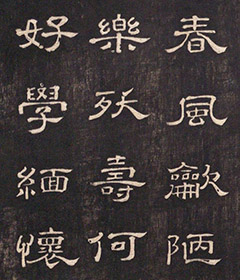 春風龡陋
樂殀壽何
好學緬懷